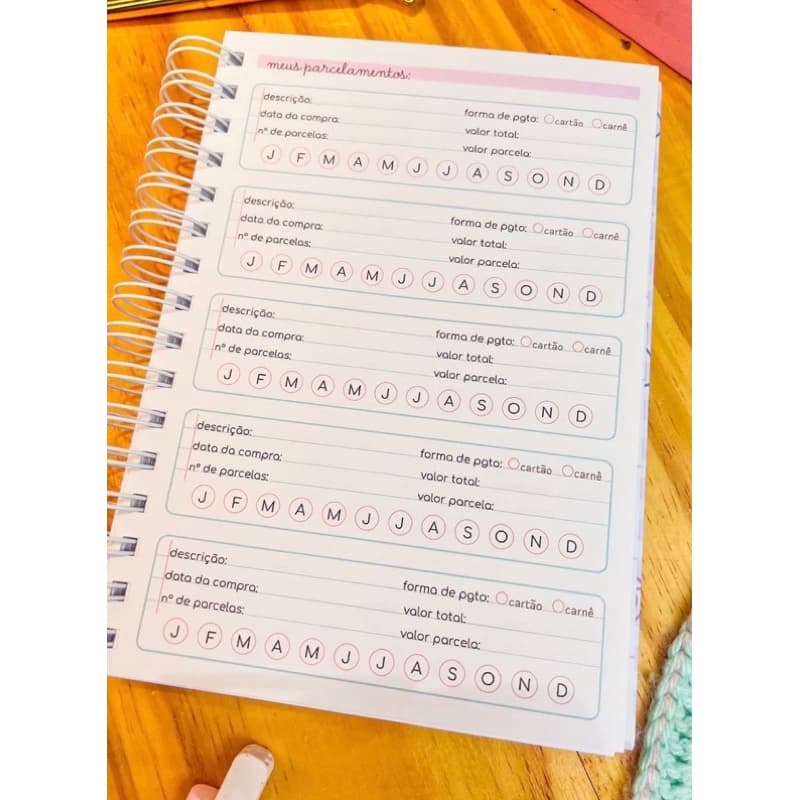 meus parcelamentos:
descrição:
data da compra: forma de pgto: cartão carnê
nº de parcelas: valor total:
valor parcela:
J F M A M J J A S O N D
descrição:
data da compra: forma de pgto: cartão carnê
nº de parcelas: valor total:
valor parcela:
J F M A M J J A S O N D
descrição:
data da compra: forma de pgto: cartão carnê
nº de parcelas: valor total:
valor parcela:
J F M A M J J A S O N D
descrição:
data da compra: forma de pgto: cartão carnê
nº de parcelas: valor total:
valor parcela:
J F M A M J J A S O N D
descrição:
data da compra: forma de pgto: cartão carnê
nº de parcelas: valor total:
valor parcela:
J F M A M J J A S O N D